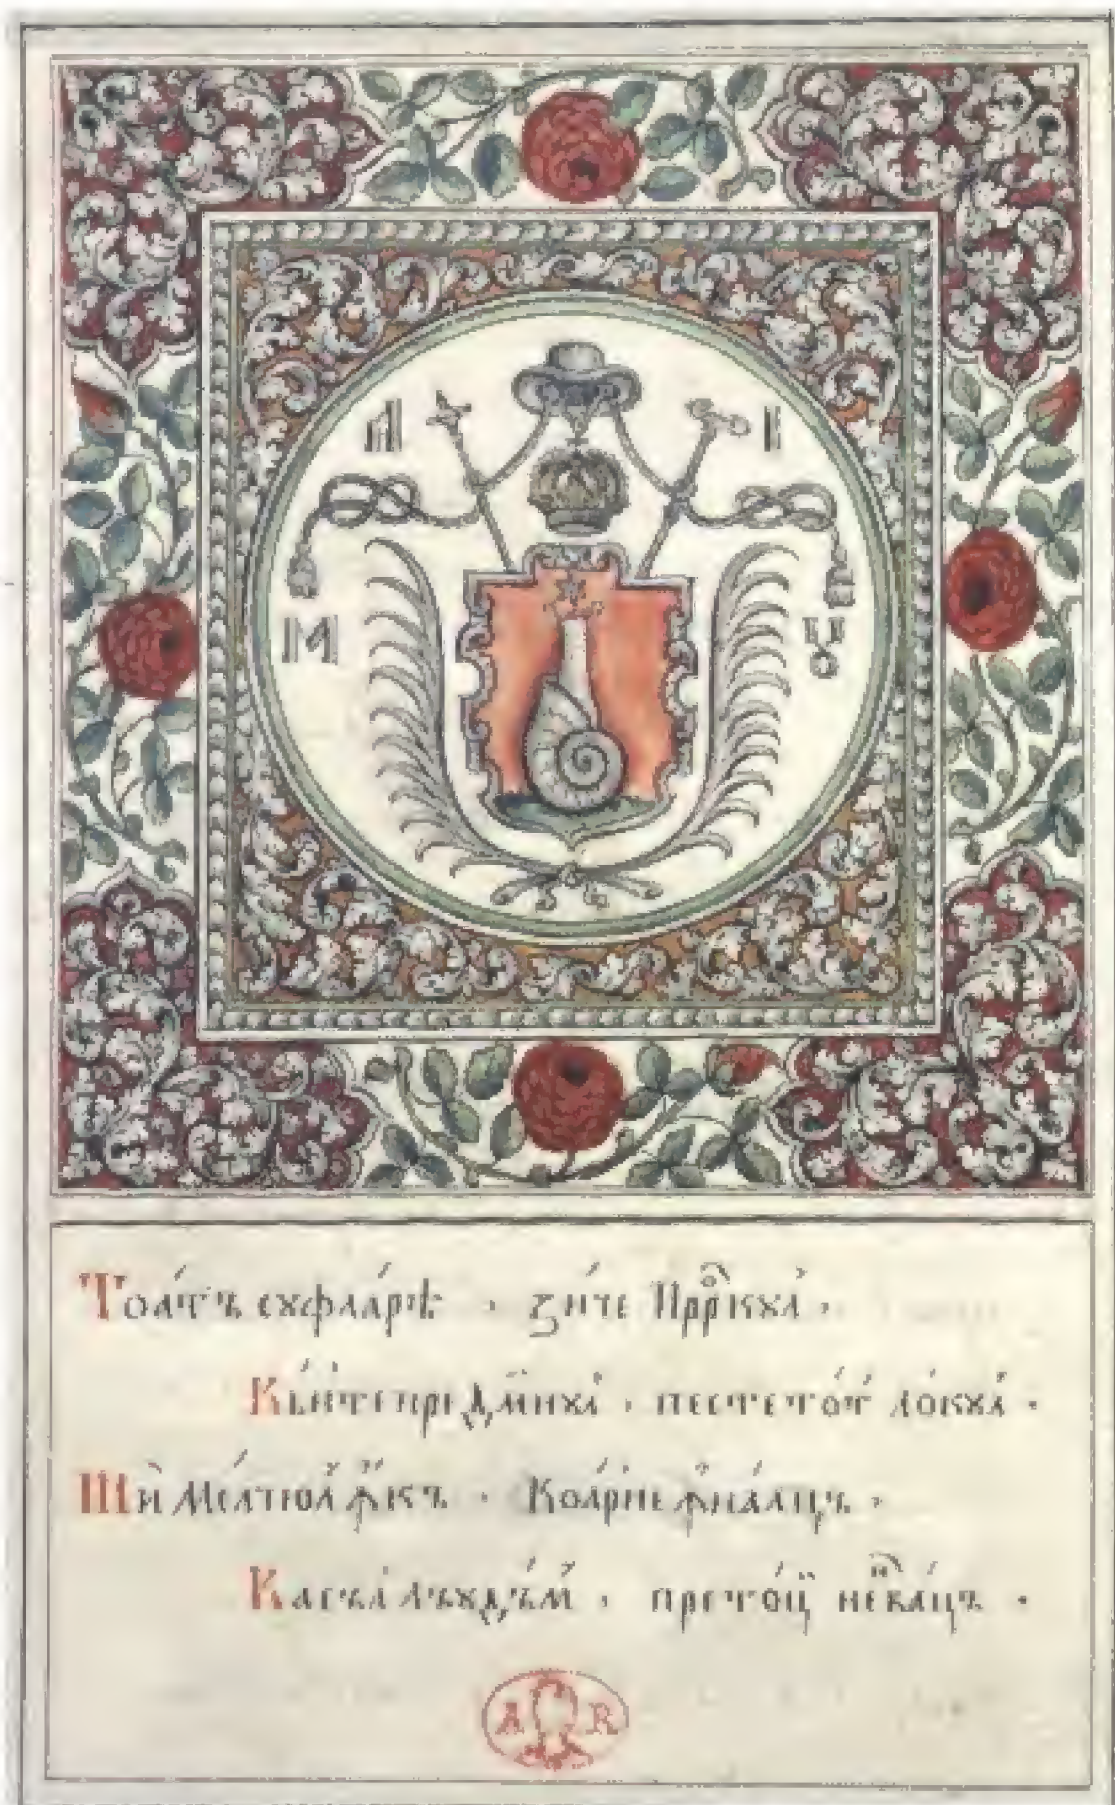 А І
М Ꙋ
Тоа́тъ сꙋфла́рѣ · зи́че Прⷪ҇ркꙋл ·
Кы́нте пре Дм҃нꙋл · песте то́т ло́кꙋл ·
Шѝ Ме́лтюл ꙟ́къ · Коа́рне ꙟна́лцъ ·
Ка съл лъꙋдъ́м · пре то́ц неⷩва́цъ ·
A R